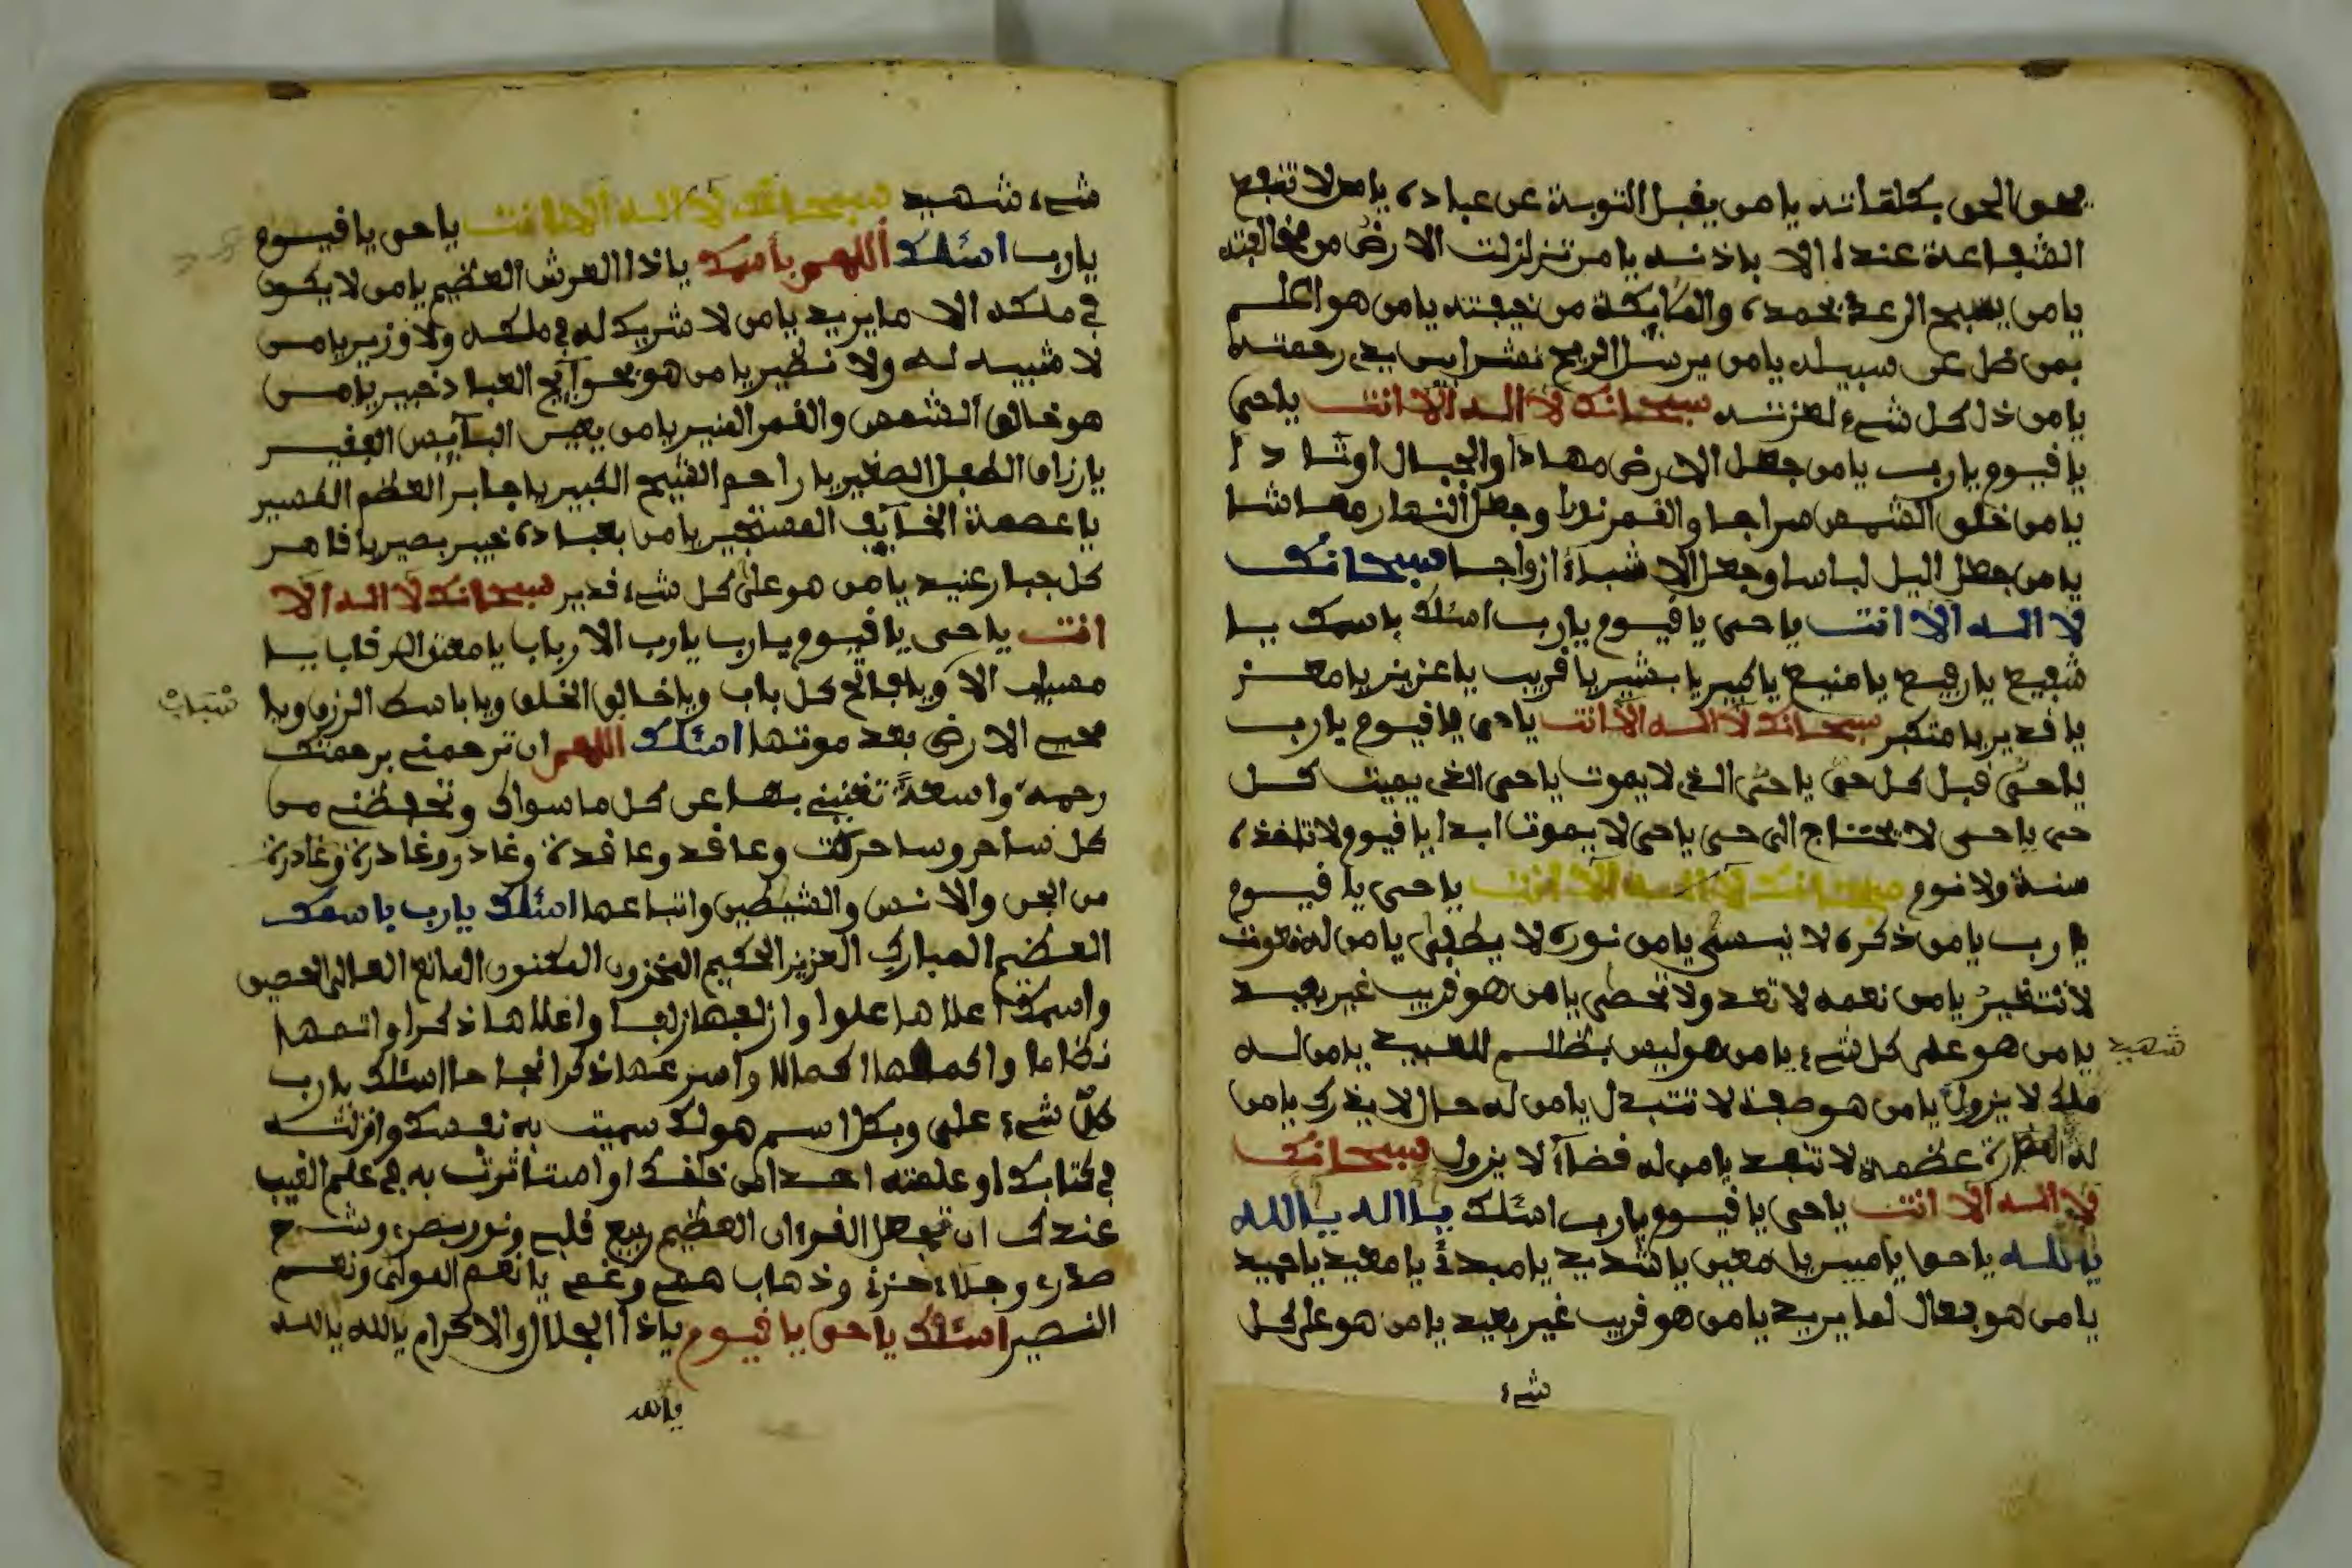 يحق الحق بكلماته يا من يقبل التوبة عن عباده يا من لا تنفع
الشفاعة عنده الا باذنه يا من تزلزلت الارض من مخافته
يا من يسبح الرعد بحمده والملايكة من خيفته يا من هو اعلم
بمن ضل عن سبيله يا من يرسل الريح نشرا بين يدي رحمته
يا من ذل كل شيء لعزته سبحانك لا اله الا انت يا حي
يا قيوم يا رب يا من جعل الارض مهادا والجبال اوتادا
يا من خلق الشمس سراجا والقمر نورا وجعل النهار معاشا
يا من جعل اليل لباسا وجعل الاشياء ازواجا سبحانك
لا اله الا انت يا حي يا قيوم يا رب اسئلك باسمك يا
شفيع يا رفيع يا منيع يا كبير يا بشير يا قريب يا عزيز يا معز
يا قدير يا متكبر سبحانك لا اله الا انت يا حي يا قيوم يا رب
يا حي قبل كل حي يا حي الذي لا يموت يا حي الذي يميت كل
حي يا حي لا يحتاج الى حي يا حي لا يموت ابدا يا قيوم لا تاخذه
سنة ولا نوم سبحانك لا اله الا انت يا حي يا قيوم
يا رب يا من ذكره لا ينسى يا من نوره لا يطفى يا من له نعوت
لا تتغير يا من نعمه لا تعد ولا تحصى يا من هو قريب غير بعيد
يا من هو على كل شيء يا من هو ليس بظلم للعبيد يا من له
شهيد
ملك لا يزول يا من هو صفة لا تتبدل يا من له حال لا يدرك يا من
له عظمة لا تبعد يا من له قضاء لا يزول سبحانك
لا اله الا انت يا حي يا قيوم يا رب اسئلك يا الله يا الله
يا لله يا حي يا مبين يا معين يا شديد يا مبدئ يا معيد يا حميد
يا من هو فعال لما يريد يا من هو قريب غير بعيد يا من هو على كل
شيء
شيء شهيد سبحانك لا اله الا انت يا حي يا قيوم
يا رب اسئلك اللهم باسمك يا ذا العرش العظيم يا من لا يكون
في ملكه الا ما يريد يا من لا شريك له في ملكه ولا وزير يا من
لا شبيه له ولا نظير يا من هو بحوآيج العباد خبير يا من
هو خالق الشمس والقمر المنير يا من يعين البآيس الفقير
يا رزاق الطفل الصغير يا راحم الشيخ الكبير يا جابر العظم الكسير
يا عصمة الخآيف المستجير يا من بعباده خبير بصير يا قاهر
كل جبار عنيد يا من هو على كل شيء قدير سبحانك لا اله الا
انت يا حي يا قيوم يا رب يا رب الارباب يا معتق الرقاب يا
مسبب الا ويا فاتح كل باب ويا خالق الخلق ويا باسط الرزق ويا
سباب
محيي الارض بعد موتها اسئلك اللهم ان ترحمني برحمتك
رحمة واسعة تغنيني بها عن كل ما سواك وتحفظني من
كل ساحر وساحرت وعاقد وعاقدة وغادر وغادرة وغادرة
من الجن والانس والشيطين واتباعها اسئلك يا رب باسمك
العظيم المبارك العزيز الحكيم المخزون المكنون المانع العالي الحصين
واسمك اعلاها علوا وارفعها رفعا واعلاها ذكرا واتمها
نظاما واكملها اكمالا واسرعها ذكرا نجاحا اسئلك يا رب
كل شيء علي وبكل اسم هو لك سميت به نفسك وانزلته
في كتابك او علمته احدا من خلقك او استاثرت به في علم الغيب
عندك ان تجعل القرءان العظيم ربيع قلبي ونور بصري وشرح
صدري وجلاء حزني وذهاب همي وغمي يا نعم المولى ونعم
النصير اسئلك يا حي يا قيوم يا ذا الجلال والاكرام يا لله يا لله
يا لله